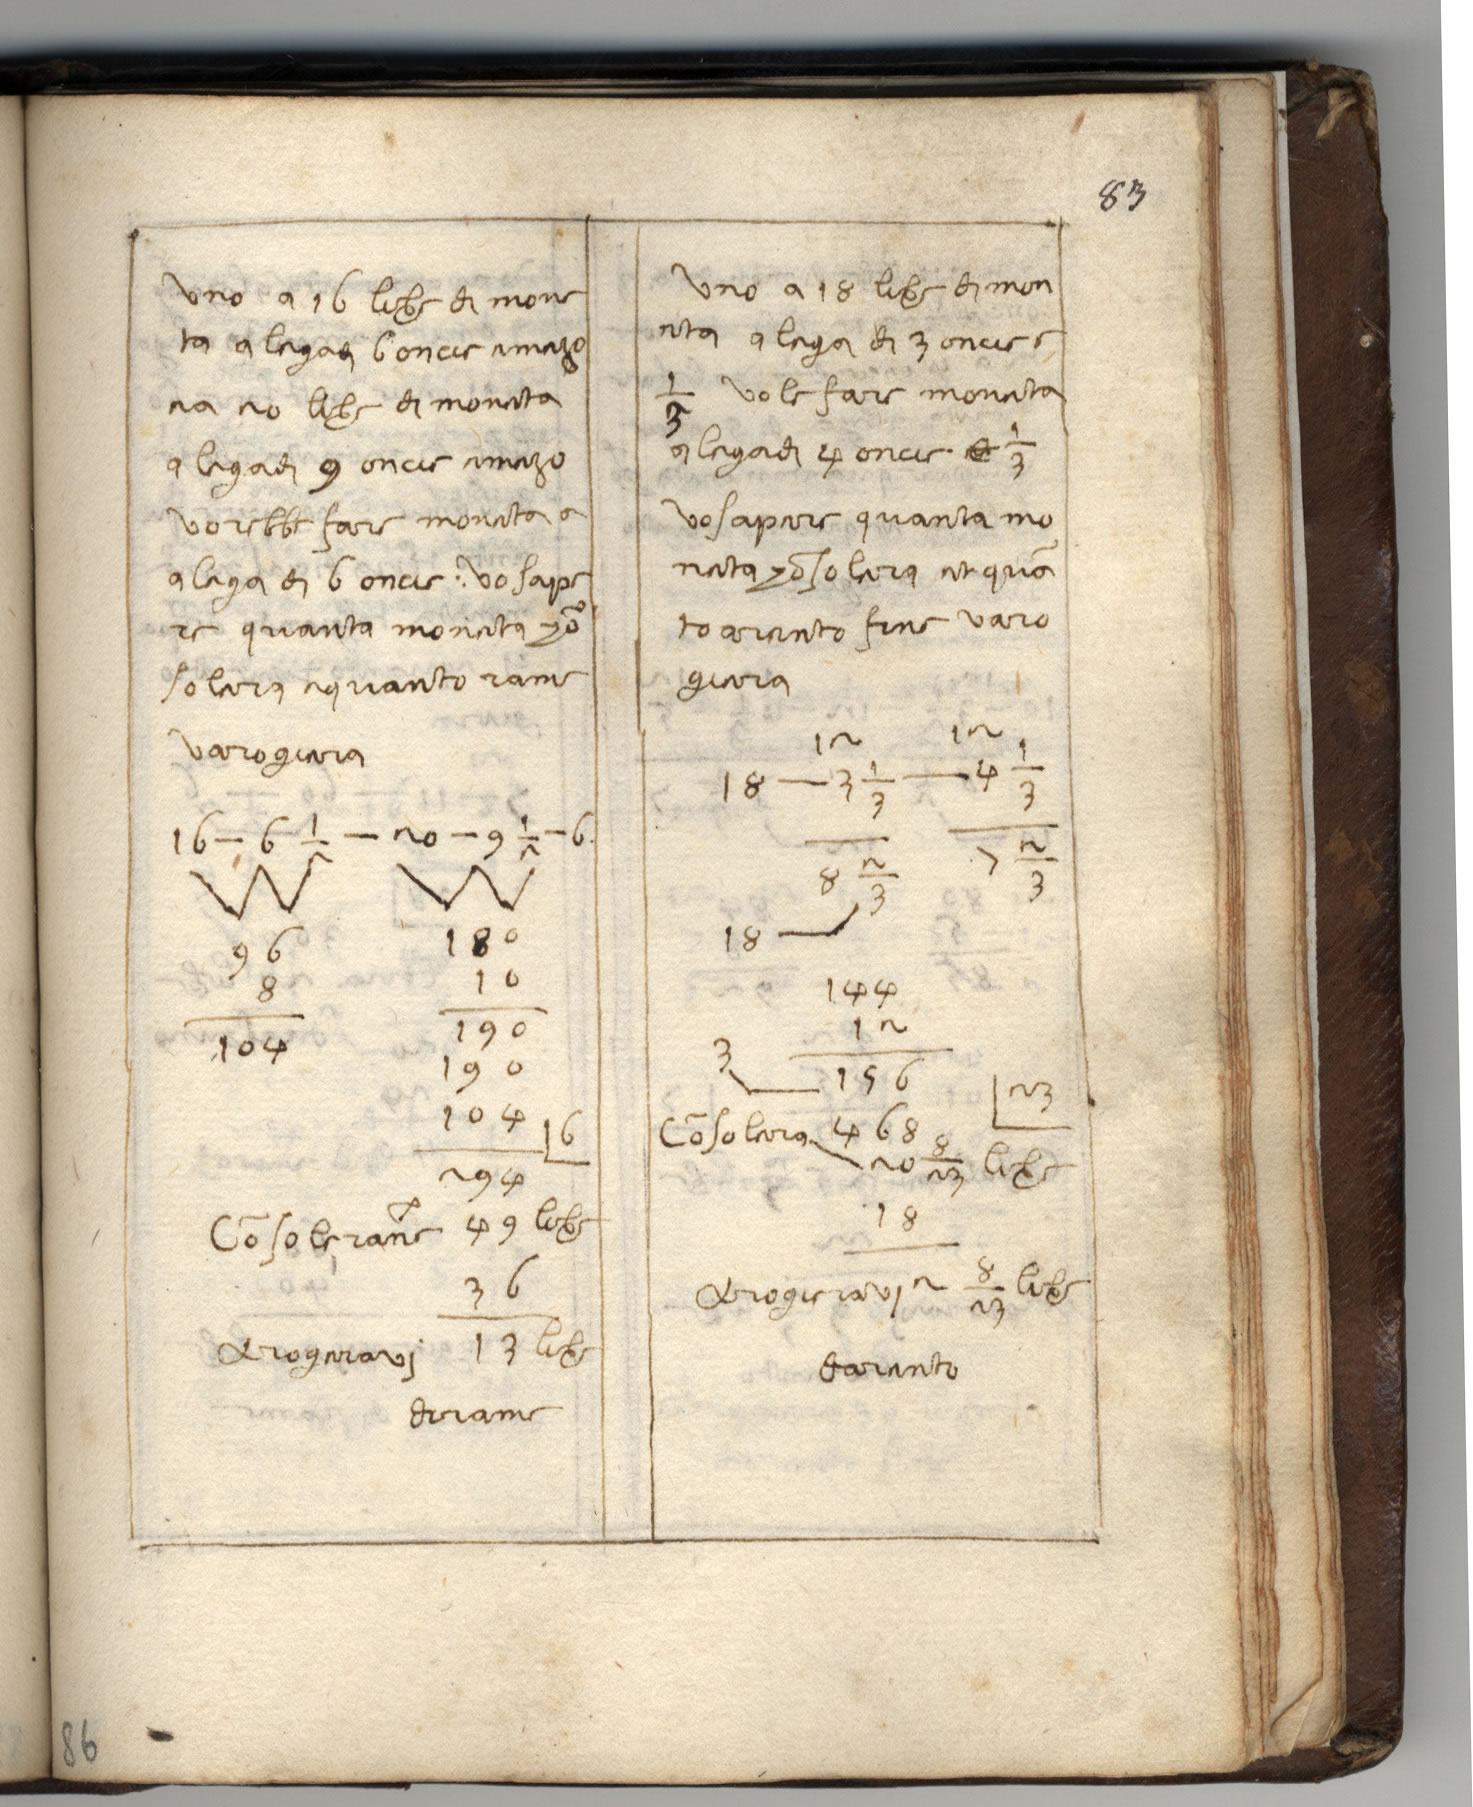 83
Uno a 16 libre di mone
ta a lega di 6 oncie emezo
ea 20 libre di moneta
a lega di 9 oncie emezo
vorebbe fare moneta a
a lega di 6 oncie : vo sape
re quanta moneta
solera equanto rame
varogiera
16 — 6 1/2 — 20 — 9 1/2 — 6
96 180
8 10
104 190
190
104 16
294
Cōsolerane 49 libre
36
rogieravi 13 libre
de rame
Uno a 18 libre di mon
eta a lega di 3 oncie e
1/3 vole fare moneta
a lega di 4 oncie e 1/3
vo sapere quanta mo
neta solera et quā
to arento fine varo
giera
12 12
18 — 3 1/3 — 4 1/3
8 2/3 7 2/3
18
144
12
3 156 23
Cōsolera 468
20 8/23 libre
18
rogieravi 2 8/23 libre
darento
86